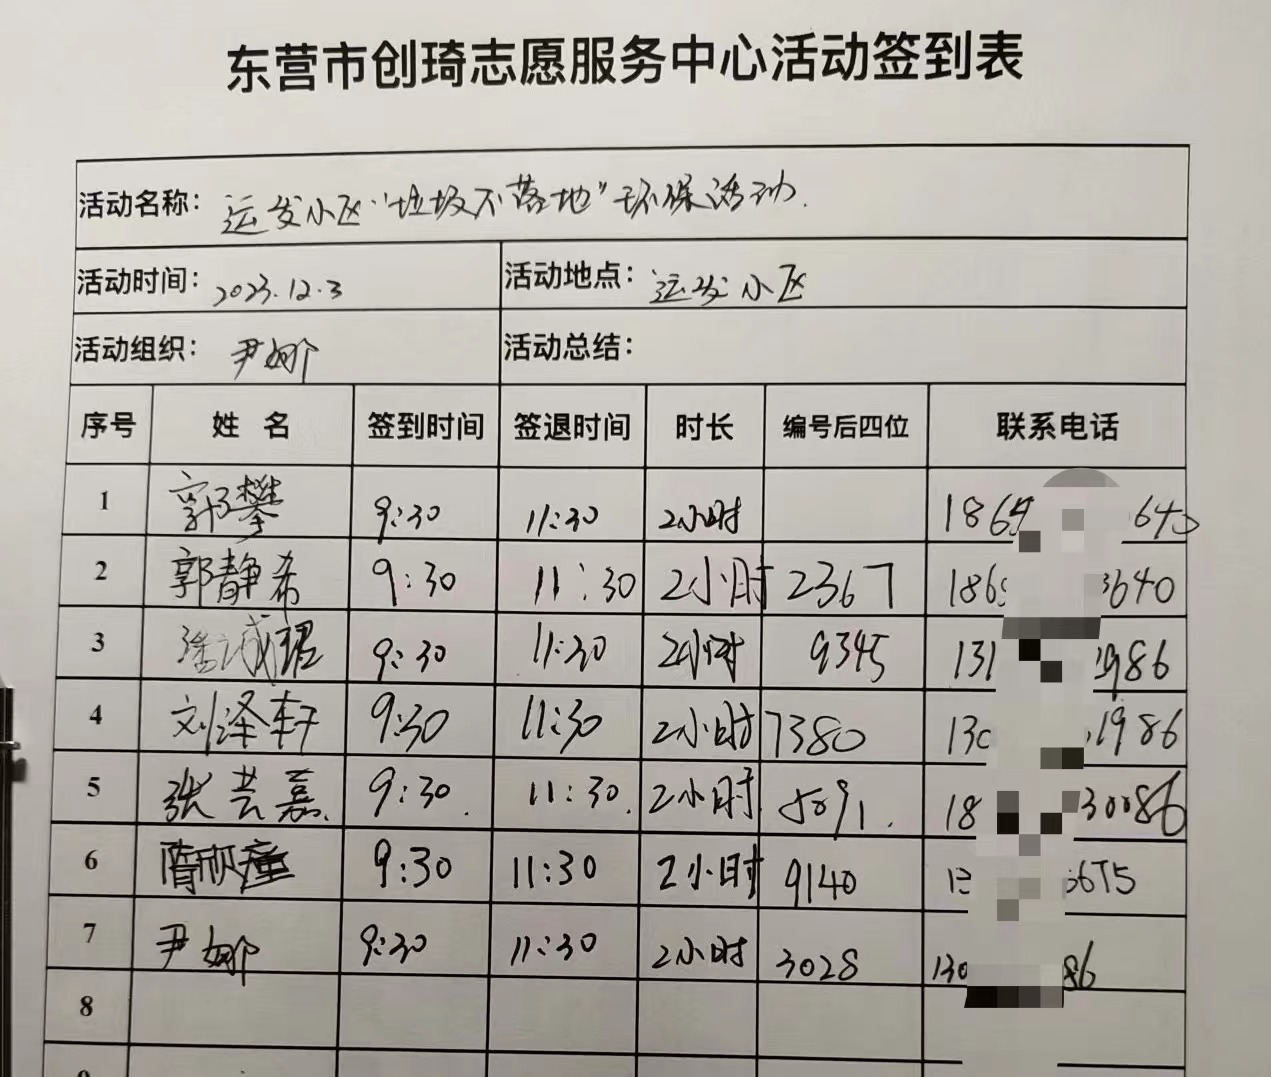 东营市创琦志愿服务中心活动签到表
活动名称：运发小区“垃圾不落地”环保活动.
活动时间：2023.12.3 活动地点：运发小区
活动组织：尹娜 活动总结：
序号 姓名 签到时间 签退时间 时长 编号后四位 联系电话
1 郭攀 9:30 11:30 2小时 1864 640
2 郭静希 9:30 11:30 2小时 2367 186 3640
3 9:30 11:30 2小时 9345 131 1986
4 刘泽轩 9:30 11:30 2小时 7380 130 1986
5 张芸嘉. 9:30. 11:30. 2小时. 5091. 18 30086
6 9:30 11:30 2小时 9140 13 3675
7 尹娜 9:30 11:30 2小时 3028 130 86
8